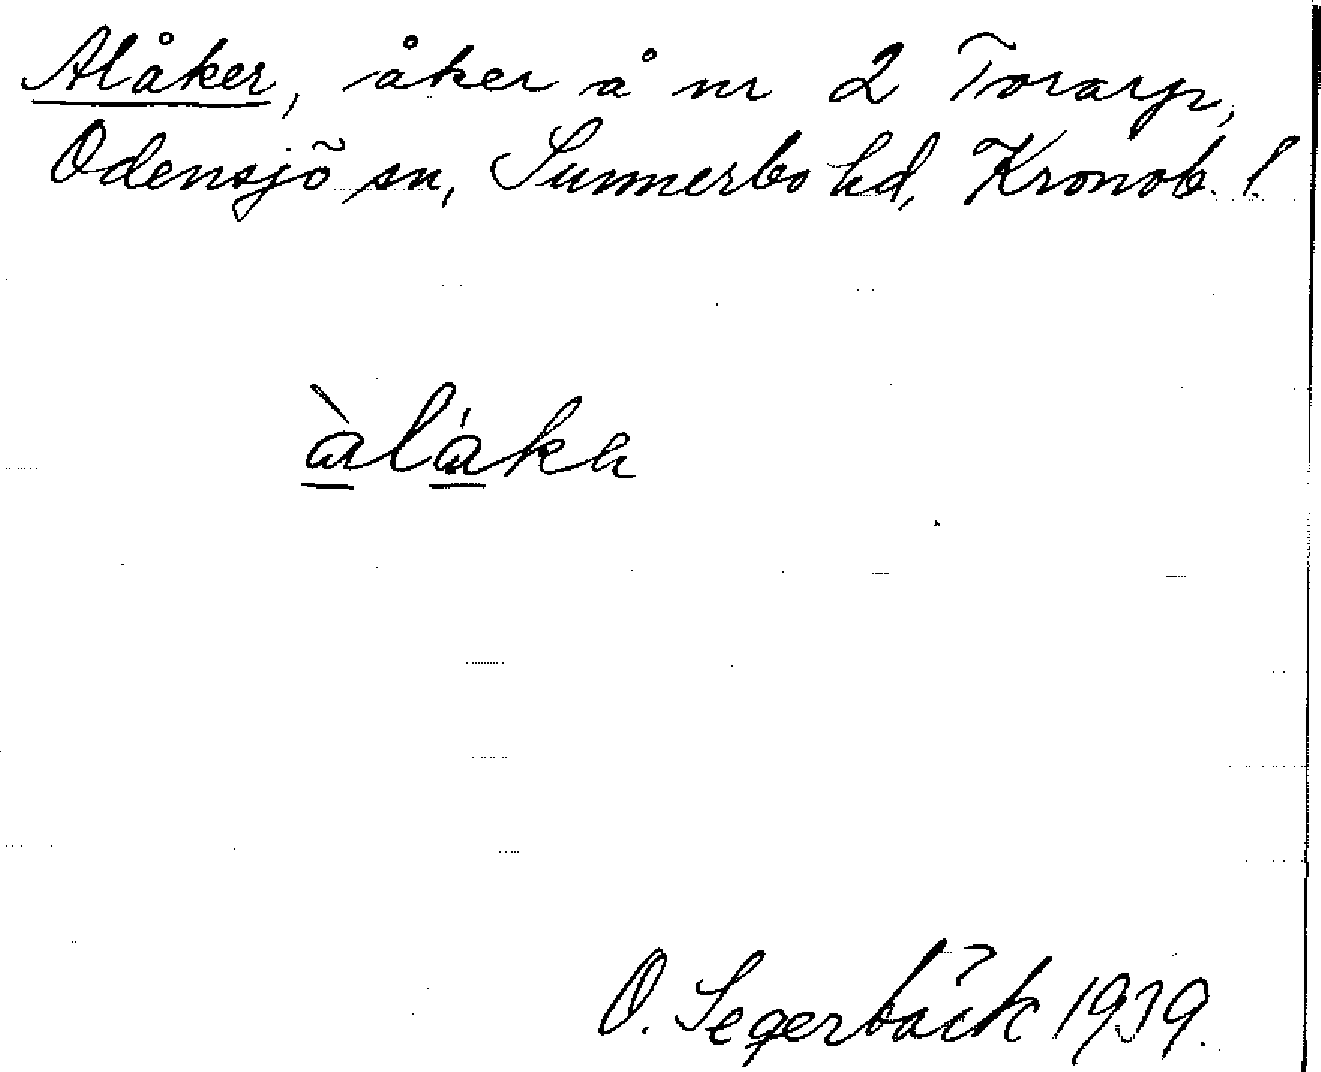 Alåker, åker å nr 2 Torarp,
Odensjö sn, Sunnerbo hd, Kronob. l.
àlákh
O. Segerbäck 1939.